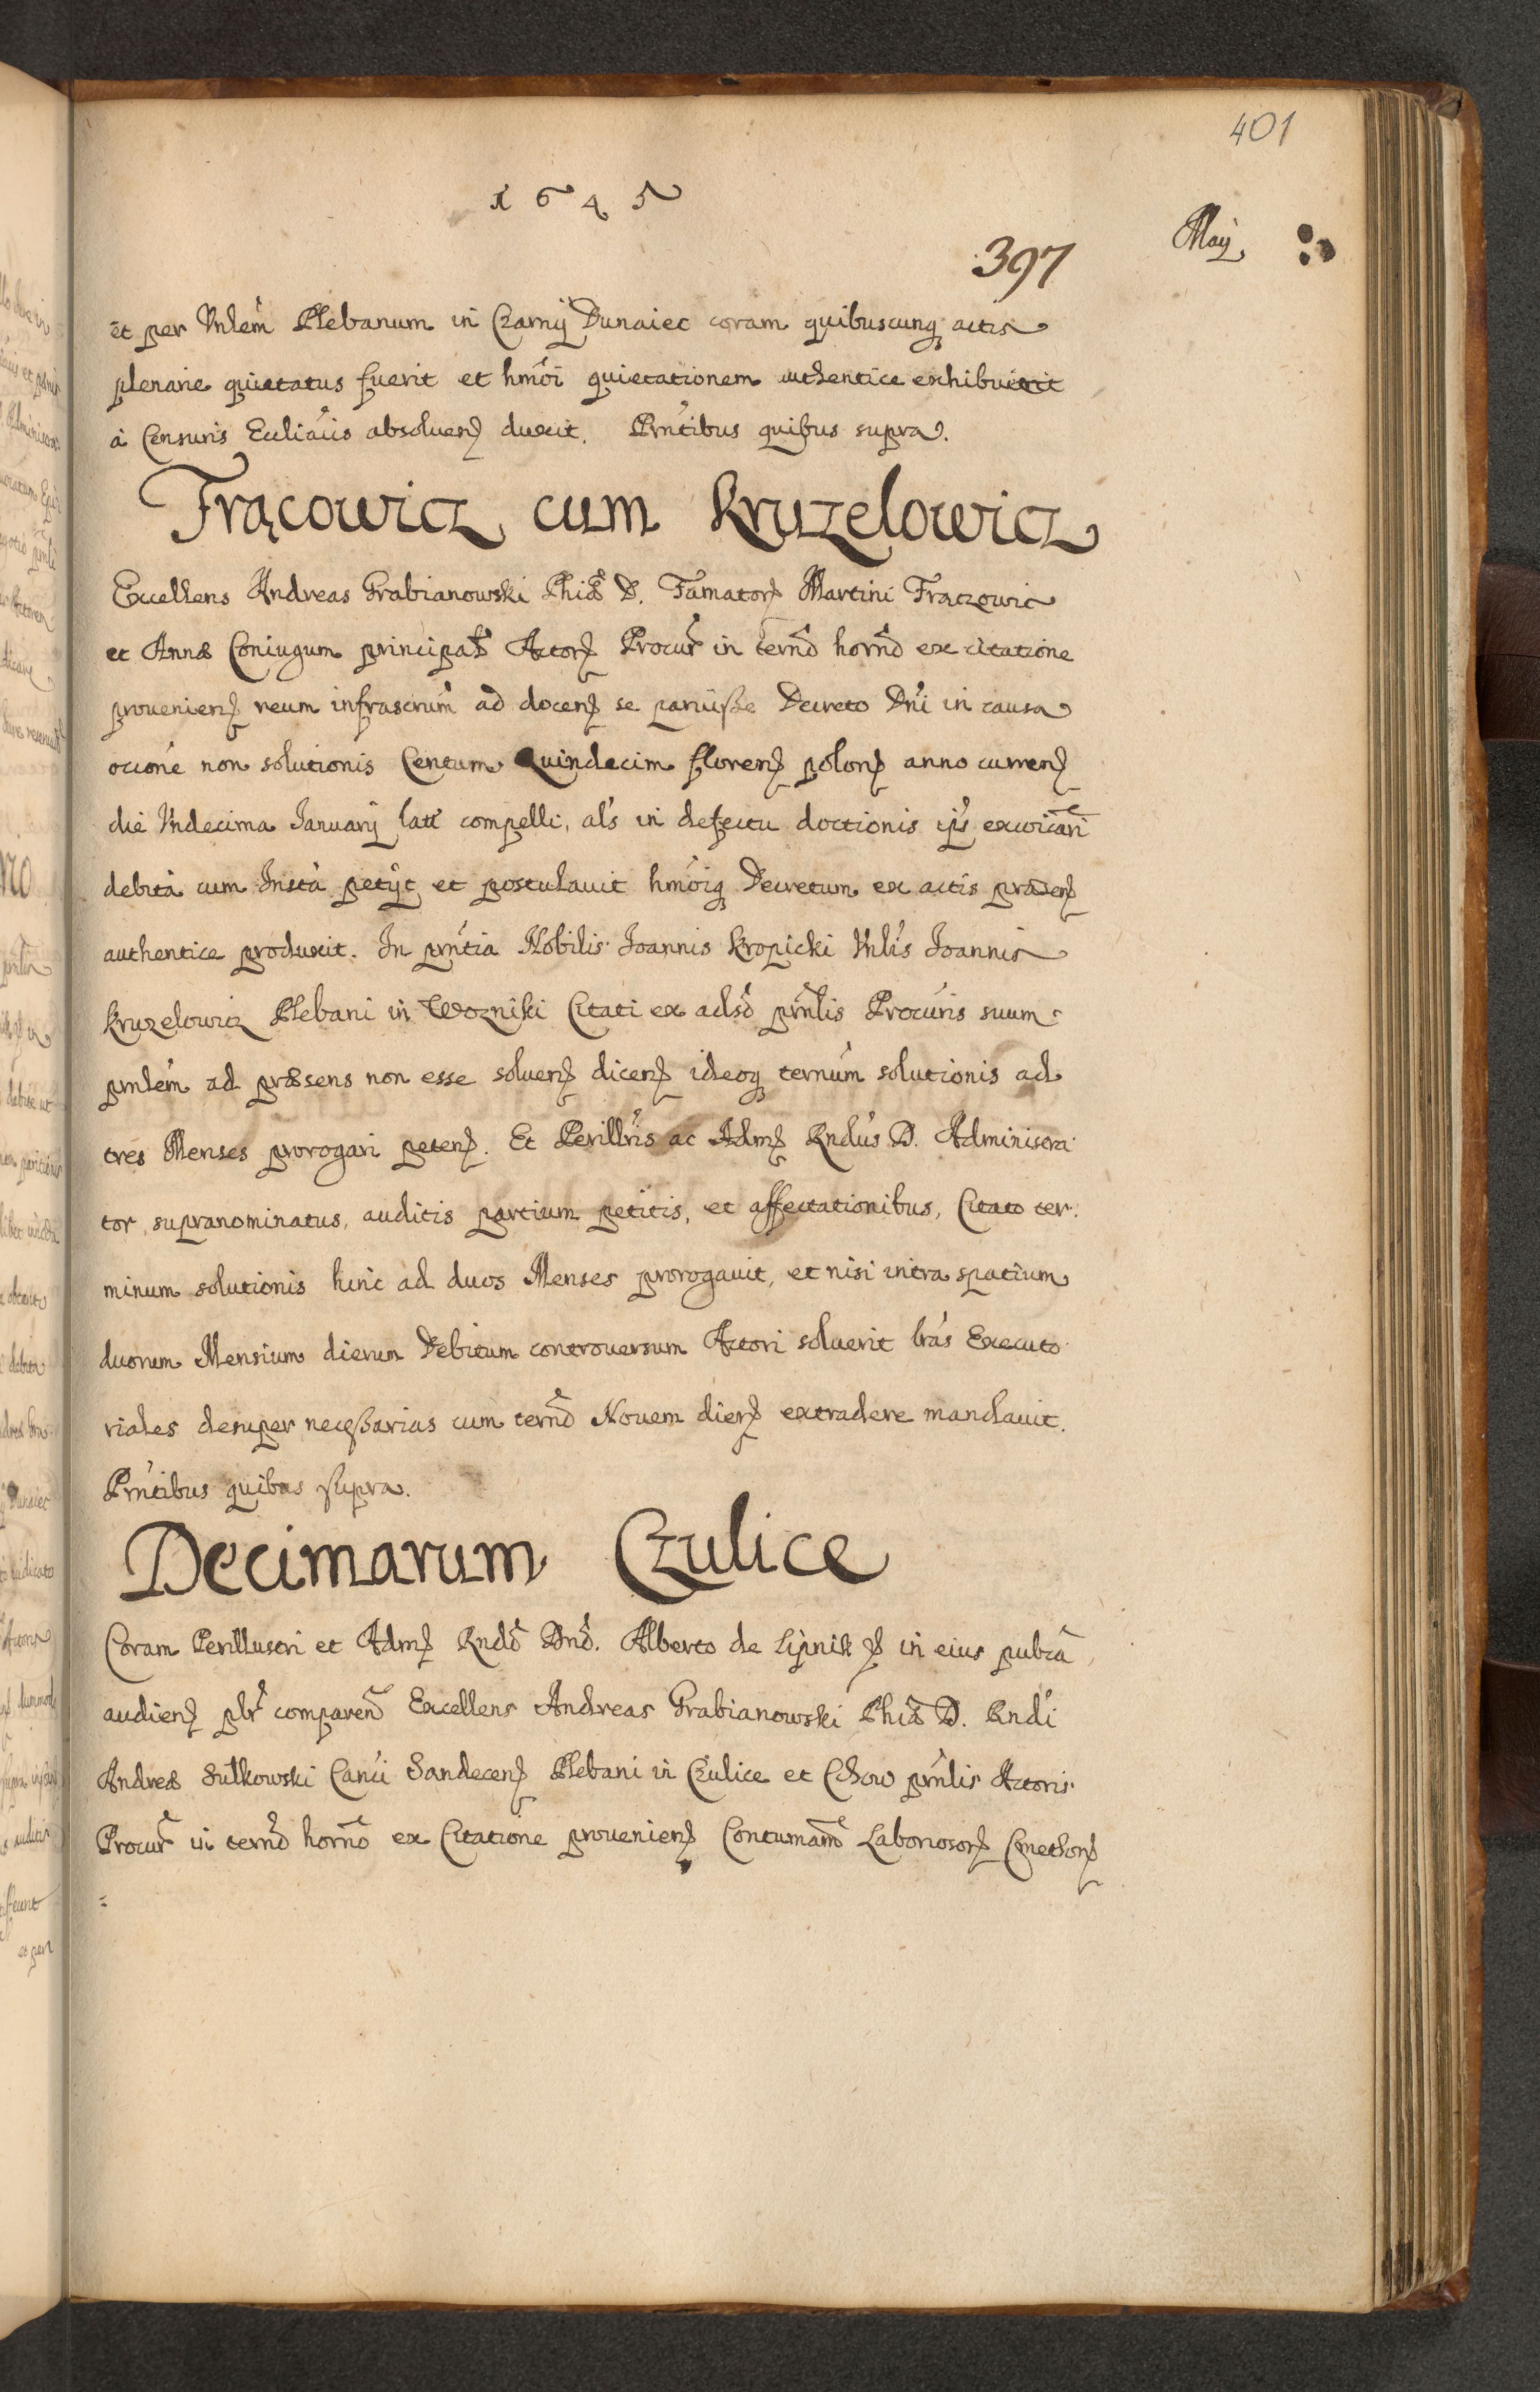 401
1645
May
397
et per Vnlem Plebanum in Czarny Dunaiec coram quibuscunq actis
plenarie quietatus fuerit et hmoi quietationem authentice exhibuerit
a Censuris Eccliaiis absoluen duxit. Pntibus quibus supra.
Frącowicz cum Kruzelowicz
Excellens Andreas Grabianowski Phiæ D. Famator Martini Frączowic
et Annæ Coniugum principal Actor Procur in termo horno ex citatione
prouenien reum infrascrum ad docen se paruisse Decreto Dni in causa
occone non solutionis Centum Quindecim floren polon anno curren
die Vndecima January latt compelli, als in defectu doctionis ips excoicari
debita cum Insta petijt et postulauit hmoiq Decretum ex actis præsen
authentice produxit. In pntia Nobilis Joannis Kropicki Vnlis Joannis
Kruzelowicz Plebani in Wozniki Citati ex adso pnlis Procuris suum
pnlem ad præsens non esse soluen dicen ideoq ternum solutionis ad
tres Menses prorogari peten. Et Perillris ac Adm Rndus D. Administra
tor supranominatus, auditis partium petitis, et affectationibus, Citato ter
minum solutionis hinc ad duos Menses prorogauit, et nisi intra spatium
duorum Mensium dierum Debitum controuersum Actori soluerit lras Executo
riales desuper necessarias cum terno Nouem dier extradere mandauit.
Pntibus quibus supra.
Decimarum Czulice
Coram Perillustri et Adm Rndo Dno. Alberto de Lipnik in eius publca
audien plr comparen Excellens Andreas Grabianowski Phiæ D. Rndi
Andreæ Sulkowski Canci Sandecen Plebani in Czulice et Cchow pnlis Actoris
Procur in terno horno ex Citatione prouenien Contumam Laborosor Cmethon